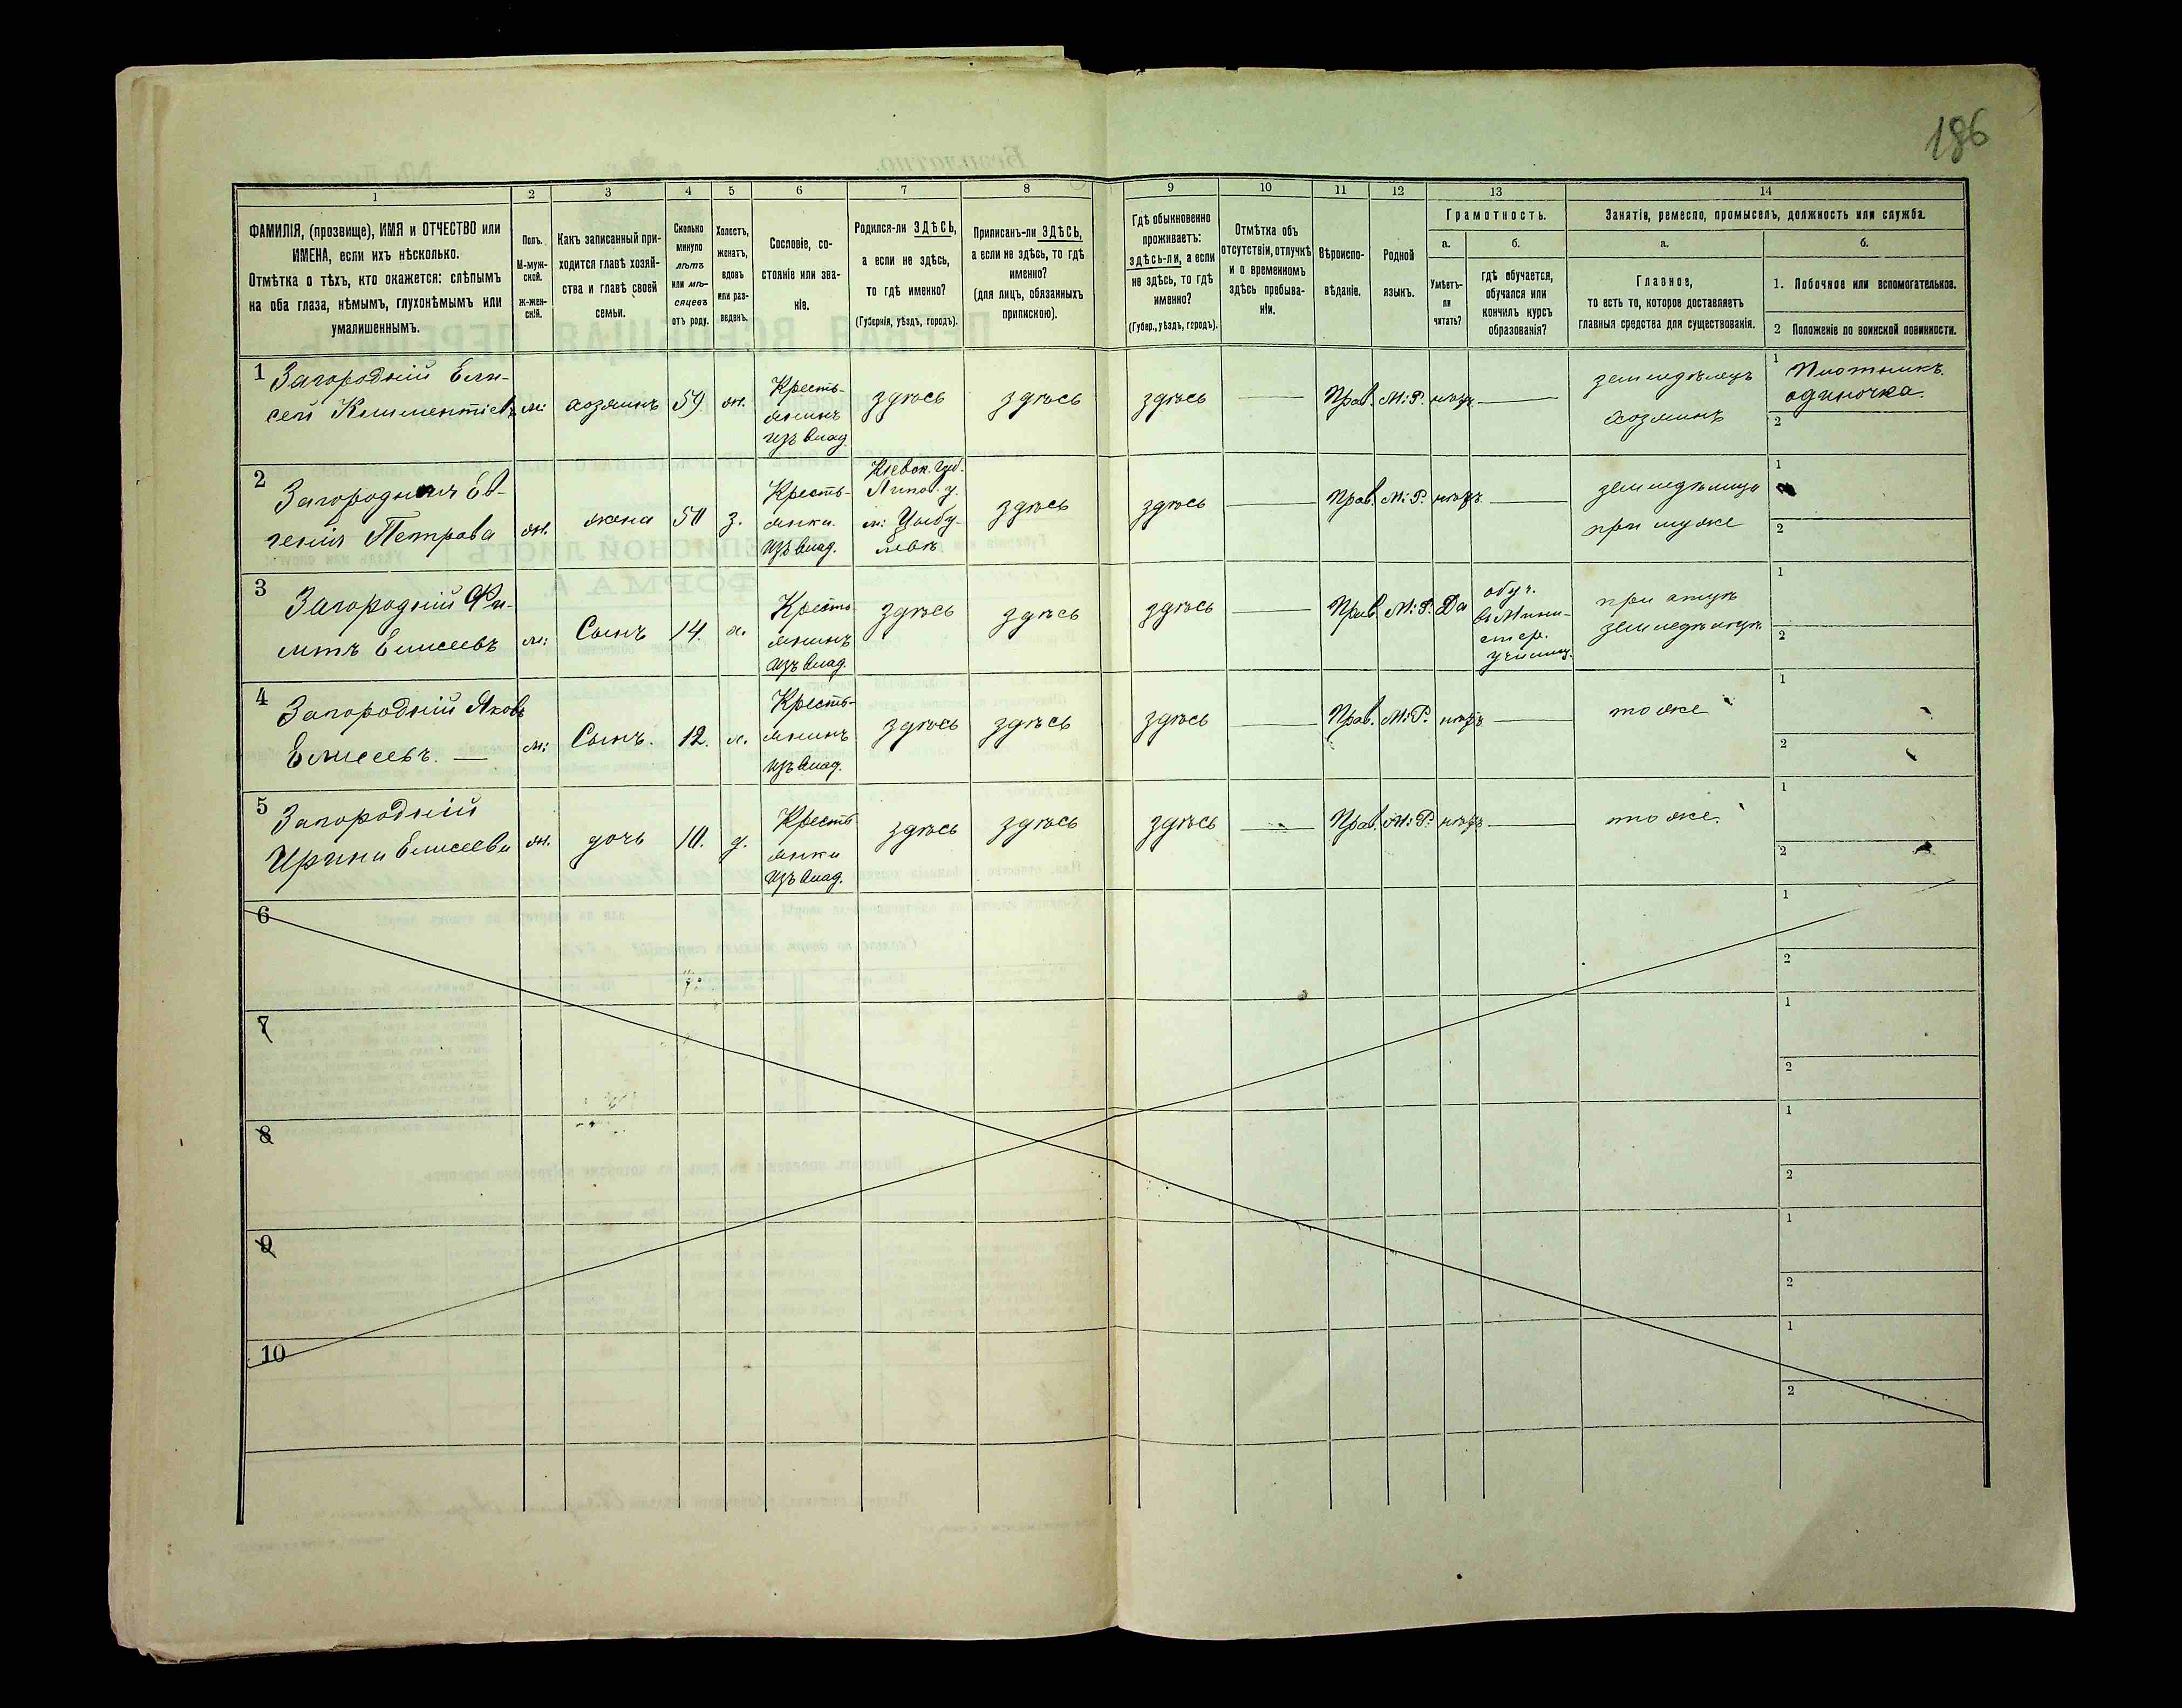 186
1
2
3
4
5
6
7
8
9
10
11
12
13
14
ФАМИЛІЯ, (прозвище), ИМЯ и ОТЧЕСТВО или
ИМЕНА, если ихъ нѣсколько.
Отмѣтка о тѣхъ, кто окажется: слѣпымъ
на оба глаза, нѣмымъ, глухонѣмымъ или
умалишеннымъ.
Полъ.
М-муж-
ской.
ж-жен-
скій.
Какъ записанный при-
ходится главѣ хозяй-
ства и главѣ своей
семьи.
Сколько
минуло
лѣтъ
или мѣ-
сяцевъ
отъ роду.
Холостъ,
женатъ,
вдовъ
или раз-
веденъ.
Сословіе, со-
стояніе или зва-
ніе.
Родился-ли ЗДѢСЬ,
а если не здѣсь,
то гдѣ именно?
(Губернія, уѣздъ, городъ).
Приписанъ-ли ЗДѢСЬ,
а если не здѣсь, то гдѣ
именно?
(для лицъ, обязанныхъ
припискою).
Гдѣ обыкновенно
проживаетъ:
здѣсь-ли, а если
не здѣсь, то гдѣ
именно?
(Губер., уѣздъ, городъ).
Отмѣтка объ
отсутствіи, отлучкѣ
и о временномъ
здѣсь пребыва-
ніи.
Вѣроиспо-
вѣданіе.
Родной
языкъ.
Грамотность.
а.
Умѣетъ-
ли
читать?
б.
гдѣ обучается,
обучался или
кончилъ курсъ
образованія?
Занятіе, ремесло, промыселъ, должность или служба.
а.
Главное,
то есть то, которое доставляетъ
главныя средства для существованія.
б.
1. Побочное или вспомогательное.
2 Положеніе по воинской повинности.
1 Загородній Ели-
сей Климентіевъ
м:
хозяинъ
59
ж.
Кресть-
янинъ
изъ влад.
здѣсь
здѣсь
здѣсь
Прав.
М: Р.
нѣтъ
земледѣлецъ
хозяинъ
1 Плотникъ
одиночка.
2
2 Загородняя Ев-
генія Петрова
ж.
жена
50
з.
Кресть-
янка.
изъ влад.
Кіевск. губ.
Липов. у.
м: Цыбу-
левъ
здѣсь
здѣсь
Прав.
М: Р.
нѣтъ
земледѣлица
при мужѣ
1
2
3 Загородній Фи-
м:
Сынъ
14.
х.
Кресть-
янинъ
изъ влад.
здѣсь
здѣсь
здѣсь
Прав.
М: Р.
Да
обуч.
въ Мини-
стер.
училищ.
при отцѣ
1
2
4 Загородній Яковъ
Елисеевъ. —
м:
Сынъ.
12.
х.
Кресть-
янинъ
изъ влад.
здѣсь
здѣсь
здѣсь
Прав.
М: Р.
нѣтъ
тоже
1
2
5 Загородній
Ирина Елисеева
ж.
дочь
10.
д.
Кресть-
янка
изъ влад.
здѣсь
здѣсь
здѣсь
Прав.
М: Р.
нѣтъ
тоже.
1
2
6
1
2
7
1
2
8
1
2
9
1
2
10
1
2